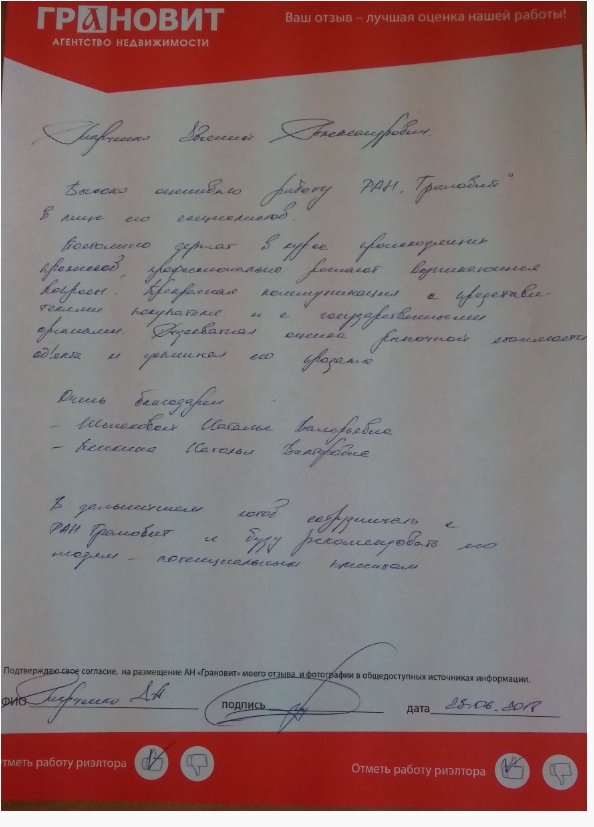 ГРАНОВИТ
АГЕНТСТВО НЕДВИЖИМОСТИ
Ваш отзыв – лучшая оценка нашей работы!
Евгений Александрович.
Высоко оцениваю работу РАН „Грановит"
в лице его специалистов.
Постоянно держат в курсе происходящих
процессов, профессионально решают возникающие
вопросы. Прекрасная коммуникация с представи-
телями покупателя и с государственными
органами. Адекватная оценка рыночной стоимости
объекта и его продажа
Очень благодарен
– Наталье Валерьевна
– Наталья Викторовна
В дальнейшем готов сотрудничать с
РАН Грановит и буду рекомендовать его
людям – потенциальным клиентам
Подтверждаю свое согласие, на размещение АН «Грановит» моего отзыва и фотографии в общедоступных источниках информации.
ФИО подпись дата
тметить работу риэлтора
Отметь работу риэлтора